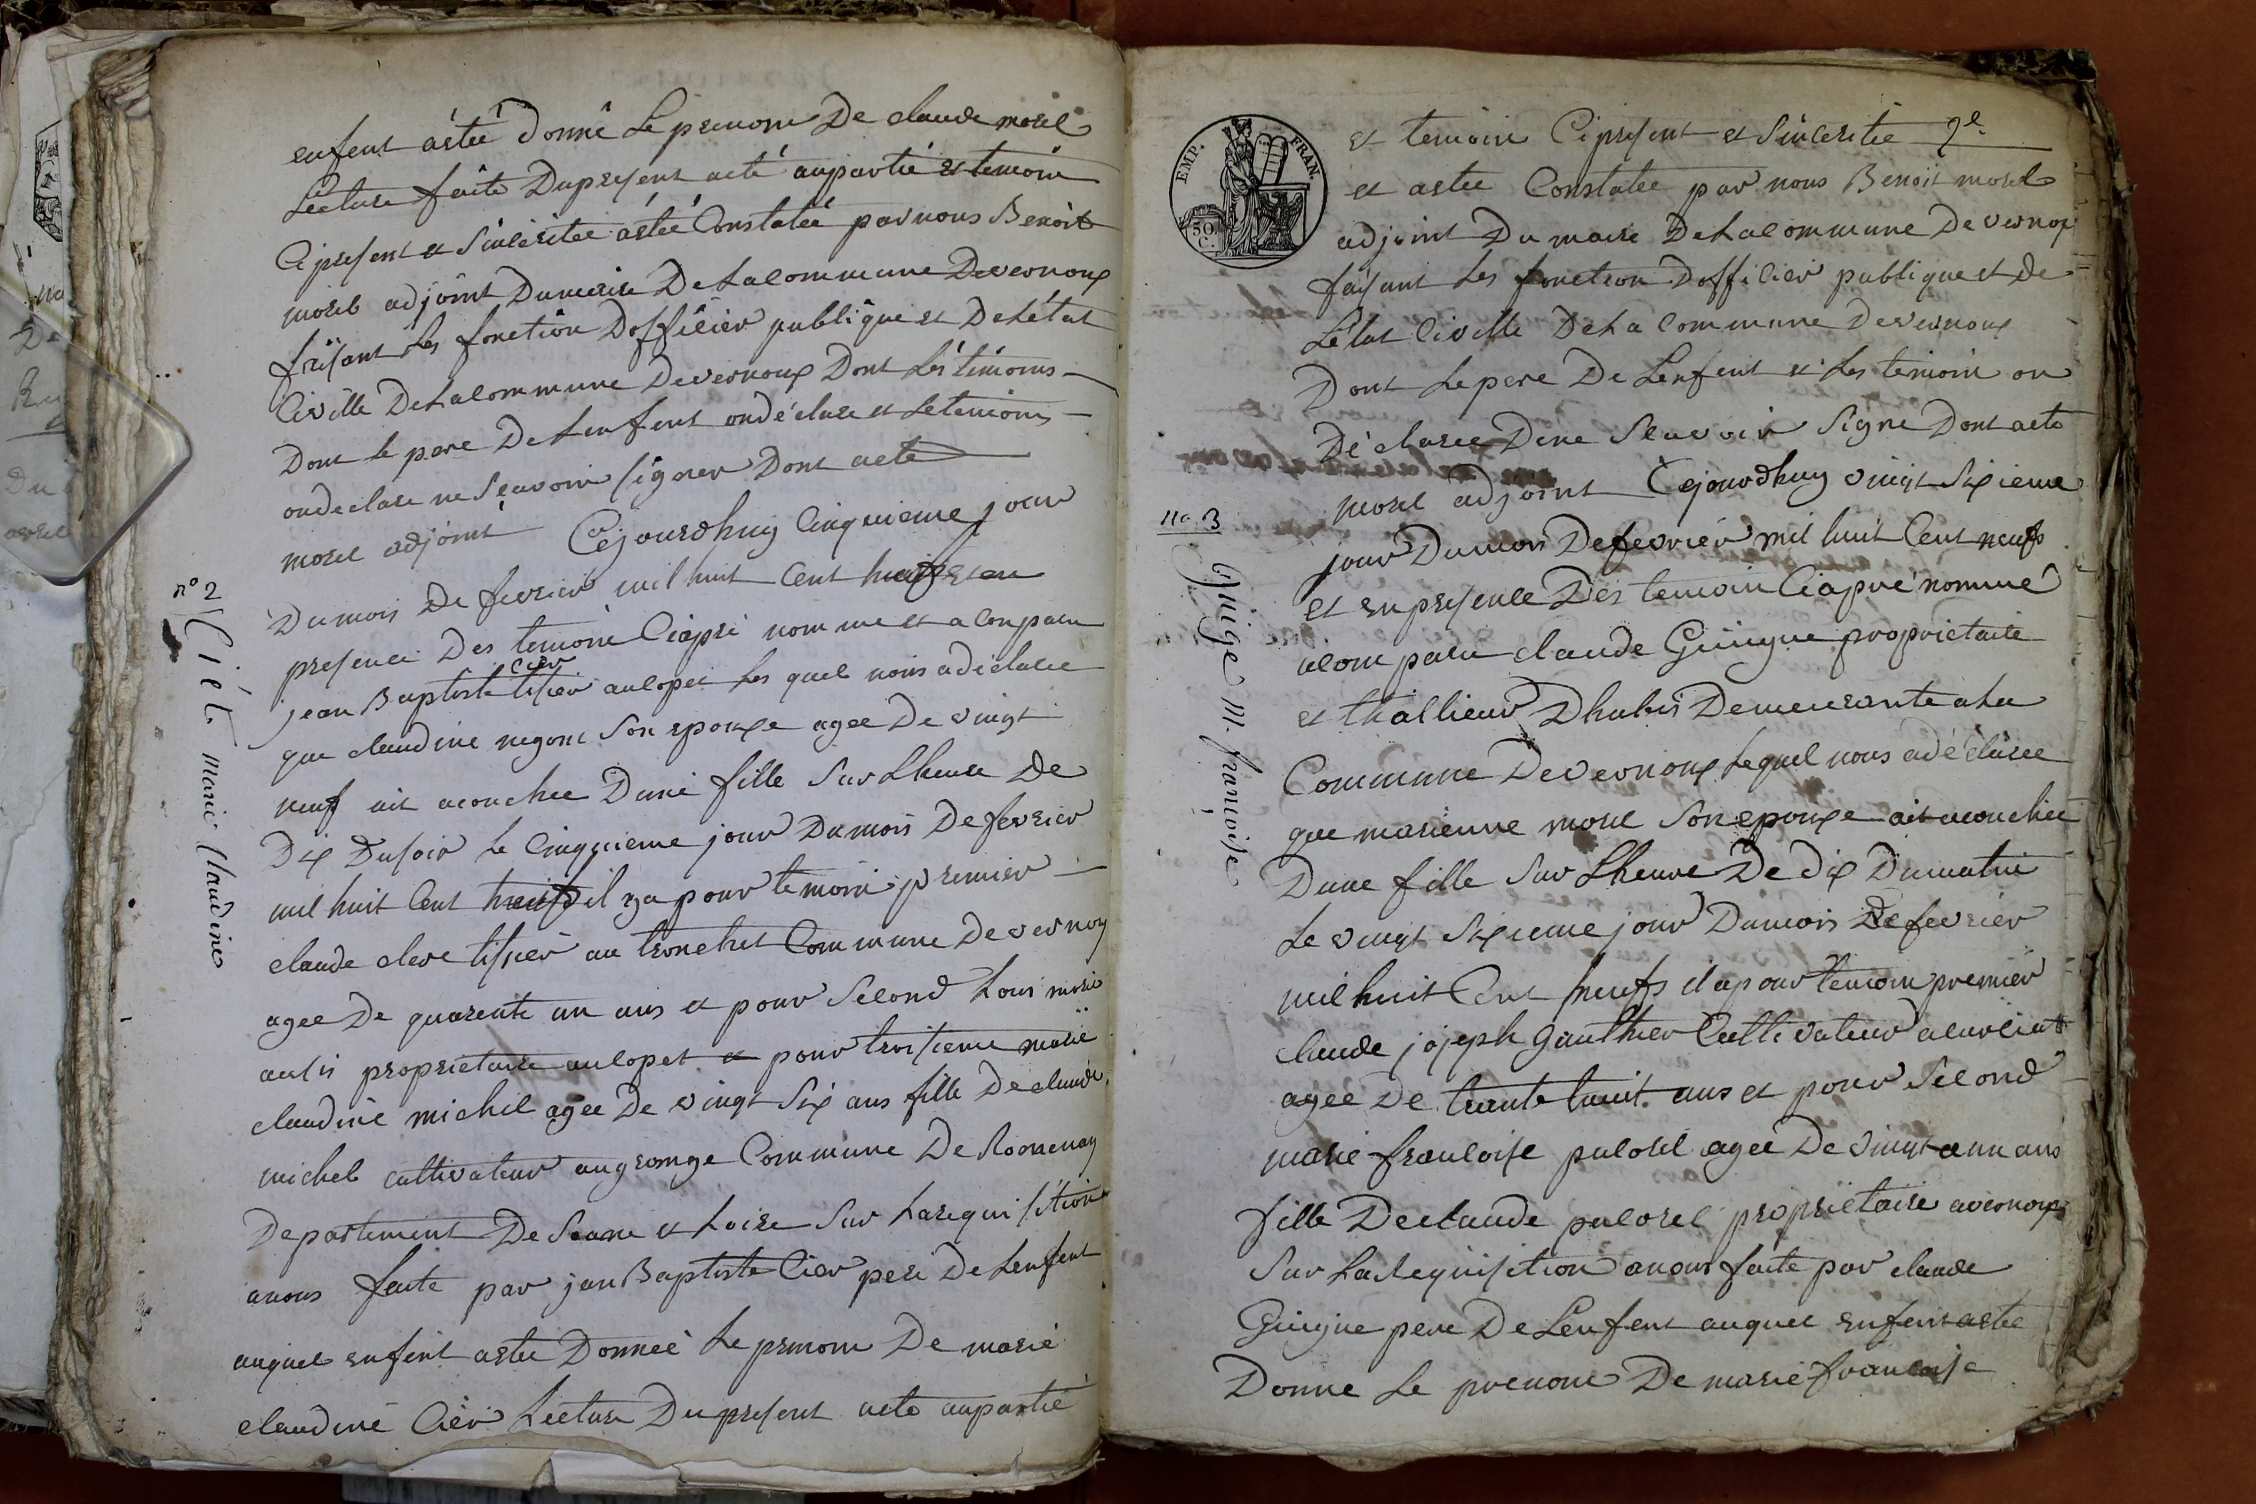 enfent aétéé donné Le prenom De claude morel
Lecture faite Du present acté aupartié et temoin
Cipresent et Sincéritée aétéé Constatéé par nous Benoit
morel adjoint Dumaire De Lacommune Devernoux
faisant Les fonction Dofficier publique et De Létat
Civille De Lacommune Devernoux Dont Lés témoins
Dont le pere De Lenfent ondéclare et Letemoins
ondeclare ne Seavoir signer Dont acte
morel adjoint Céjourdhuy Cinquieme jour
Dumois De fevrier mil huit Cent neufs et en
presence Des temoin Ciapré nomme et a Conparu
cier
jean Baptiste tisier aulopet Les quel nous adéclare
que claudine negont Son epouxe agee De vingt
neuf ait acouchee Dune fille Sur Lheure De
Dix Dusoir le Cinquieme jour Dumois De fevrier
mil huit Cent neufs il ya pour temoin premier
n° 2 Ciér marie Claudine
claude clere tissier au tronchet Commune De vernoux
agee De quarente un ans et pour Second Louis
aussi proprietaire aulopet et pour troisieme marie
claudine michel agee De vingt Six ans fille De claude
michel cultivateur augrange Commune De Romenay
Departement De Soane et Loire Sur Larequisition
anous faite par jan Baptiste Cier pere De Lenfent
auquel enfent aetee Donneé Le prenom De marié
claudiné Ciér Lecture Du present acte aupartié
EMP. FRAN.
50 C.
et temoin Cipresent et Sinceritée
et aetee Constatee par nous Benoit morel
adjoint Du maire De Lacommune De vernox
faisant Les fonction Dofficier publique et De
Létat Civille De La Commune Devernoux
Dont Le pere De Lenfent et Les temoin on
Déclaree Dene Seavoir Signe Dont acte
morel adjoint Cejourdhuy vingt Sixieme
no. 3 Guige M. françoise
jour Dumois Defevrier mil huit Cent neufs
et en presence Des temoin Ciapré nommé
acomparu claude Guigue proprietaire
et thallieur Dhabis Demeurante a La
Commune Devernoux Lequel nous adéclaree
que marienne morel Son epouxe ait acouchee
Dune fille Sur Lheure De dix Dumatin
Le vingt Sixieme jour Dumois De fevrier
mil huit Cent neufs il a pour temoin premier
claude joseph gauthier Cultivateur
agee De trante huit ans et pour Second
marie francoise pulorel agee De vingt ann ans
fille De claude pulorel proprietaire avernoux
Sur La Requisition anous faite par claude
Guigue pere De Lenfent auquel enfent aetee
Donne Le prenom De marie francoise